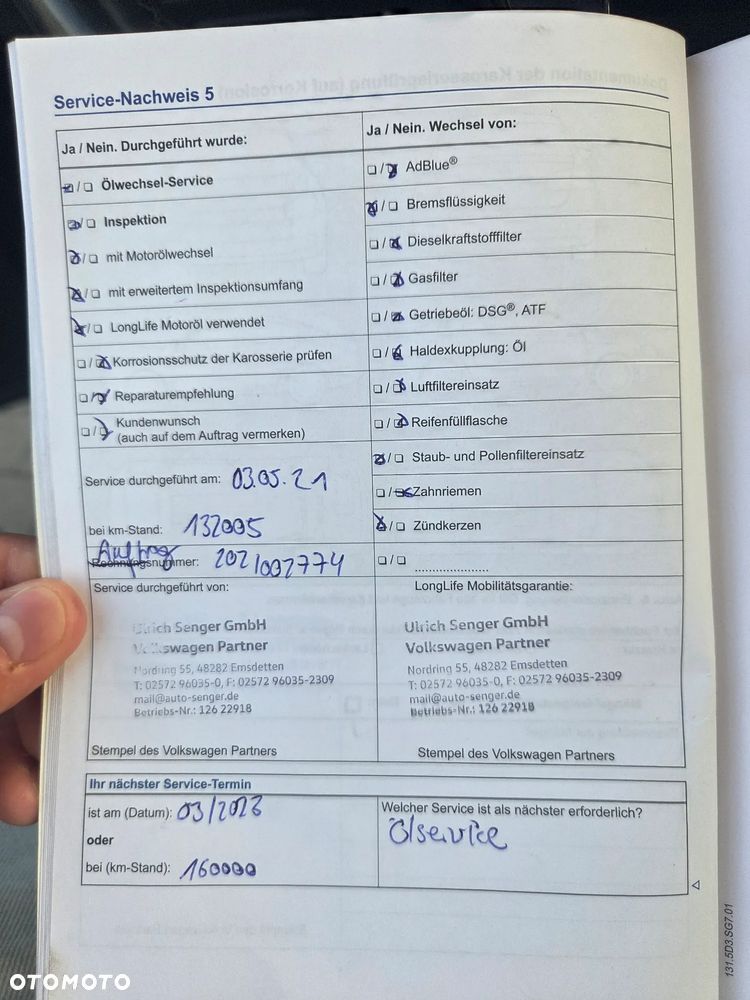 Service-Nachweis 5
Ja / Nein. Durchgeführt wurde:
☒/☐ Ölwechsel-Service
☒/☐ Inspektion
☒/☐ mit Motorölwechsel
☒/☐ mit erweitertem Inspektionsumfang
☒/☐ LongLife Motoröl verwendet
☐/☒ Korrosionsschutz der Karosserie prüfen
☐/☒ Reparaturempfehlung
☐/☒ Kundenwunsch
(auch auf dem Auftrag vermerken)
Service durchgeführt am: 03.05.21
bei km-Stand: 132005
Auftrag
Rechnungsnummer: 2021002774
Service durchgeführt von:
Ulrich Senger GmbH
Volkswagen Partner
Nordring 55, 48282 Emsdetten
T: 02572 96035-0, F: 02572 96035-2309
mail@auto-senger.de
Betriebs-Nr.: 126 22918
Stempel des Volkswagen Partners
Ja / Nein. Wechsel von:
☐/☒ AdBlue®
☒/☐ Bremsflüssigkeit
☐/☒ Dieselkraftstofffilter
☐/☒ Gasfilter
☐/☒ Getriebeöl: DSG®, ATF
☐/☒ Haldexkupplung: Öl
☐/☒ Luftfiltereinsatz
☐/☒ Reifenfüllflasche
☒/☐ Staub- und Pollenfiltereinsatz
☐/☒ Zahnriemen
☒/☐ Zündkerzen
☐/☐ ....................
LongLife Mobilitätsgarantie:
Ulrich Senger GmbH
Volkswagen Partner
Nordring 55, 48282 Emsdetten
T: 02572 96035-0, F: 02572 96035-2309
mail@auto-senger.de
Betriebs-Nr.: 126 22918
Stempel des Volkswagen Partners
Ihr nächster Service-Termin
ist am (Datum): 03/2023
oder
bei (km-Stand): 160000
Welcher Service ist als nächster erforderlich?
Ölservice
131.5D3.SG7.01
OTOMOTO